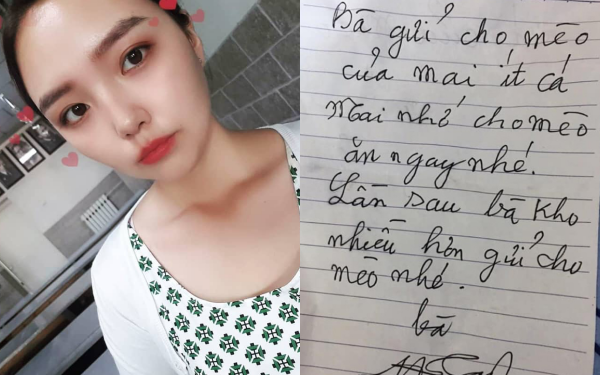 Bà gửi cho mèo
của mai ít cá
Mai nhớ cho mèo
ăn ngay nhé.
Lần sau bà kho
nhiều hơn gửi cho
mèo nhé.
bà